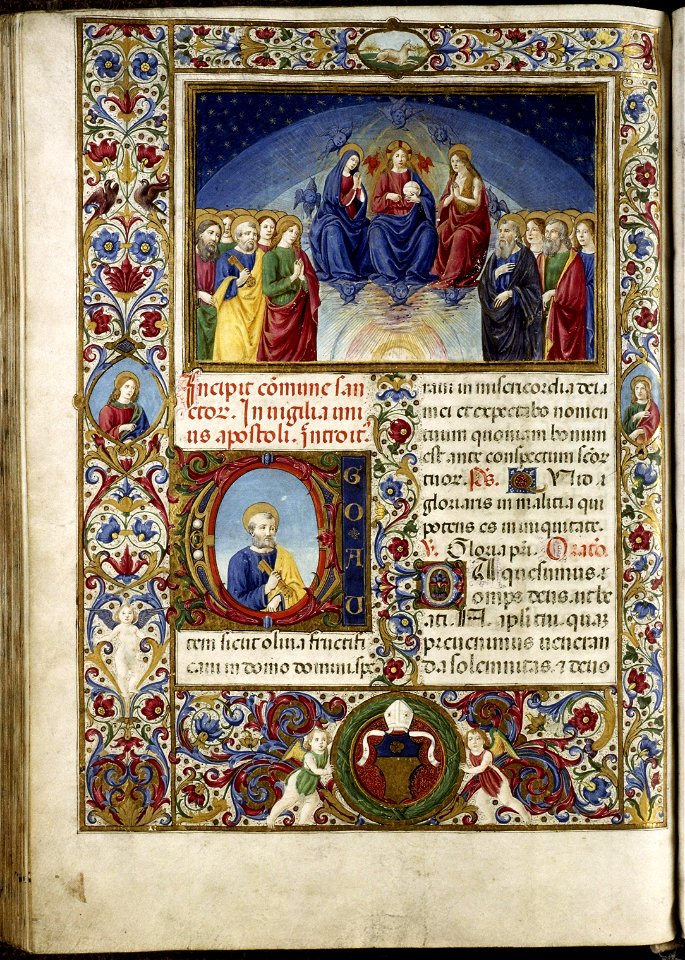 Incipit cõmune san
ctor. In uigilia uni
us apostoli. Introit
E
GO AU
tem sicut oliua fructifi
caui in domo domini spe
raui in misericordia dei
mei et expectabo nomen
tuum quoniam bonum
est ante conspectum scor
tuor. Ps. Quid
gloriaris in malitia qui
potens es in iniquitate.
V. Gloria pri. Oratio
quesumus
omps deus ut be
ati. N. apli tui quã
preuenimus ueneran
da solemnitas. & deuo